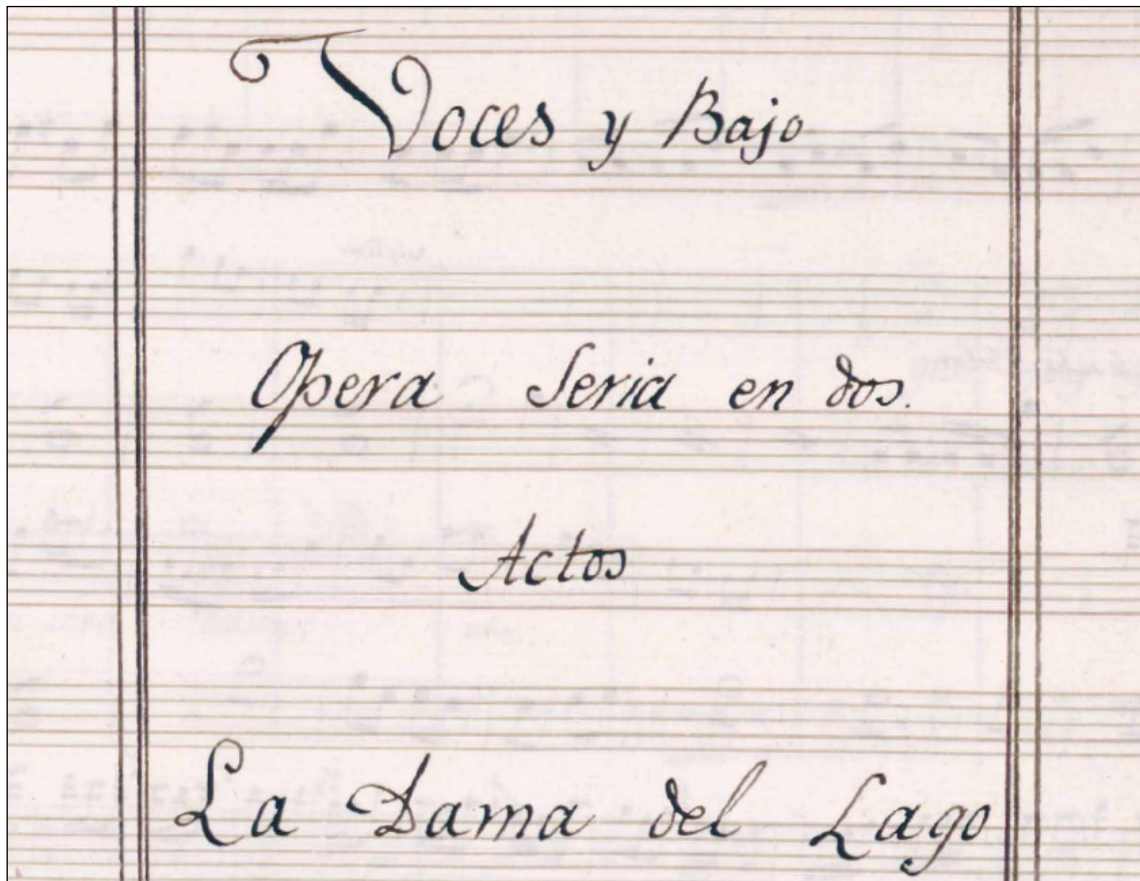 Voces y Bajo
Opera Seria en dos.
Actos
La Dama del Lago